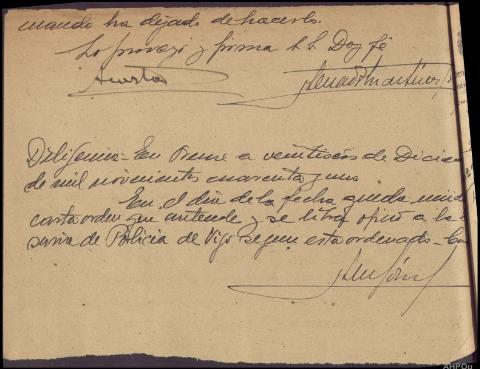 cuando ha dejado de hacerlo.
Lo proveyó y firma S.S. Doy fé
Diligencia - En Orense a veintiseis de Diciem
de mil novecientos cuarenta y uno
En el día de la fecha queda unid
carta orden que antecede y se libra oficio a la
saria de Policia de Vigo segun esta ordenado -
AHPOu